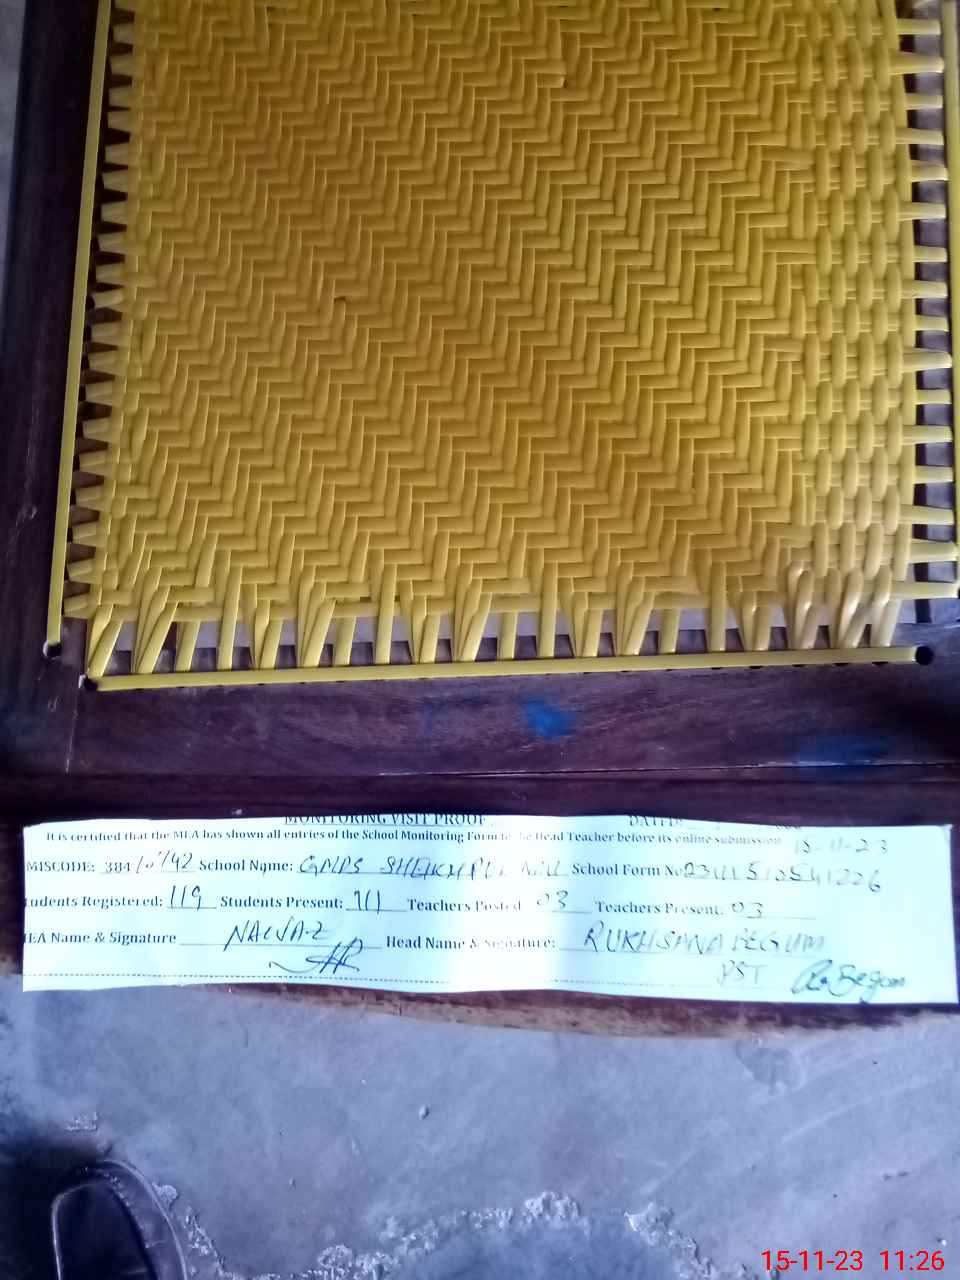 MONITORING VISIT PROOF DATED:
It is certified that the MEA has shown all entries of the School Monitoring Form to the Head Teacher before its online submission 15-11-23
MISCODE: 384 School Name: GMPS School Form No
Students Registered: 119 Students Present: Teachers Posted 03 Teachers Present: 03
MEA Name & Signature NAWAZ Head Name & Signature: RUKHSANA BEGUM
PST R.Begum
15-11-23 11:26